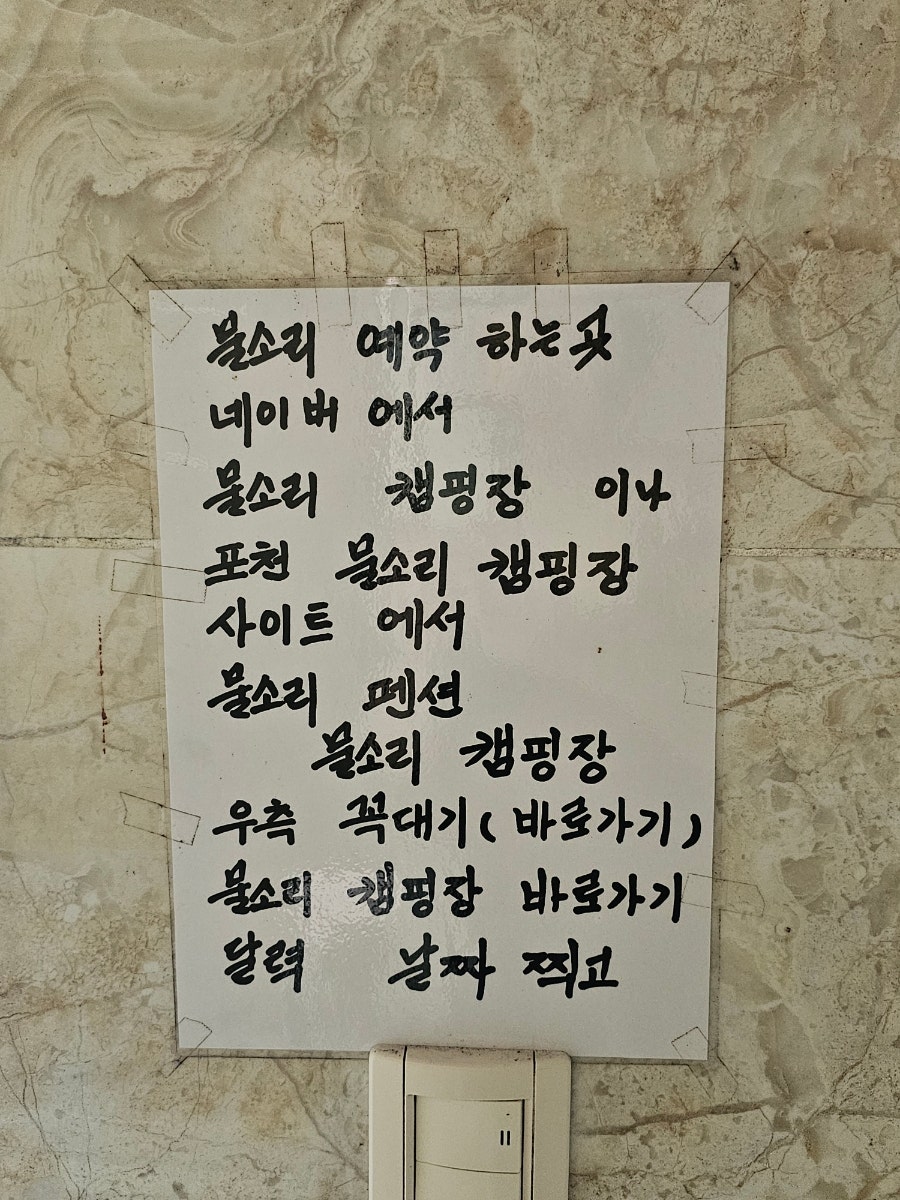 물소리 예약 하는곳
네이버 에서
물소리 캠핑장 이나
포천 물소리 캠핑장
사이트 에서
물소리 펜션
물소리 캠핑장
우측 꼭대기(바로가기)
물소리 캠핑장 바로가기
달력 날짜 찍고